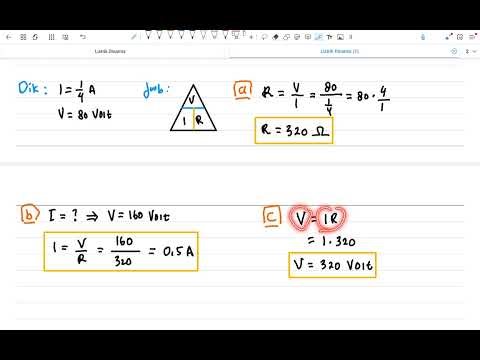 Listrik Dinamis
Listrik Dinamis (1)
Dik: I = 1/4 A
V = 80 Volt
Jwb:
V
I R
a R = V/I = 80/(1/4) = 80 · 4/1
R = 320 Ω
b I = ? ⇒ V = 160 Volt
I = V/R = 160/320 = 0,5 A
c V = I R
= 1 · 320
V = 320 Volt